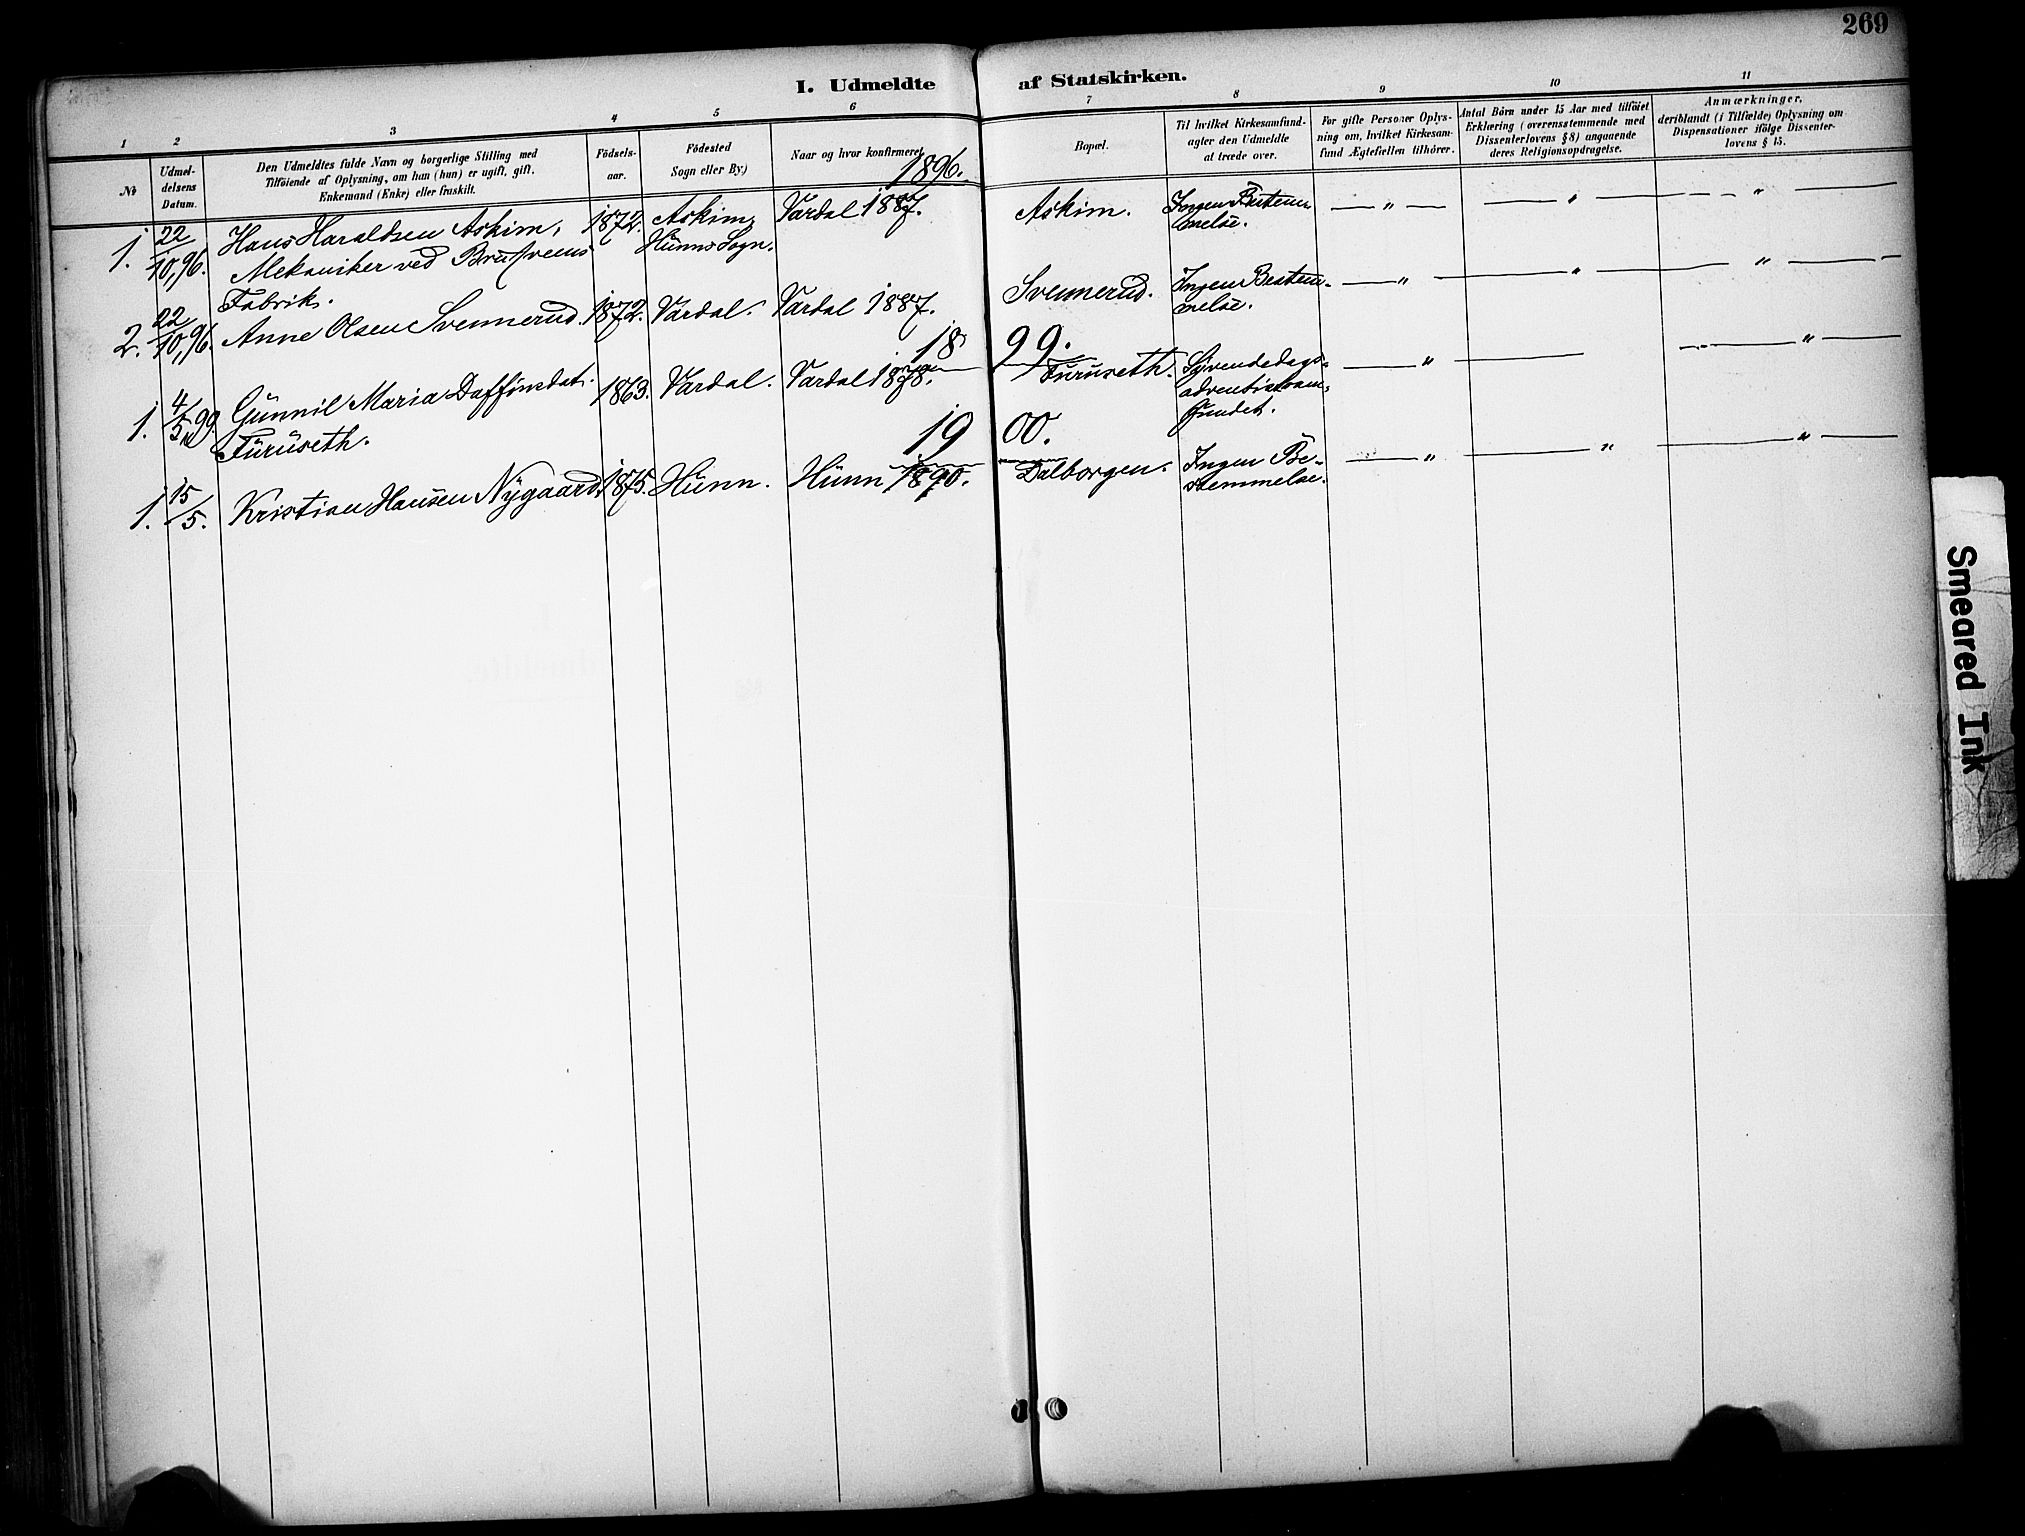 269
I. Udmeldte af Statskirken.
1 2 3 4 5 6 7 8 9 10 11
№
Udmel-
delsens
Datum.
Den Udmeldtes fulde Navn og borgerlige Stilling med
Tilføiende af Oplysning, om han (hun) er ugift, gift,
Enkemand (Enke) eller fraskilt.
Fødsels-
aar.
Fødested
Sogn eller By)
Naar og hvor konfirmeret
Bopæl.
Til hvilket Kirkesamfund-
agter den Udmeldte
at træde over.
For gifte Personer Oplys-
ning om, hvilket Kirkesam-
fund Ægtefællen tilhører.
Antal Børn under 15 Aar med tilføiet
Erklæring (overensstemmende med
Dissenterlovens § 8) angaaende
deres Religionsopdragelse.
Anmærkninger,
deriblandt (i Tilfælde) Oplysning om
Dispensationer ifølge Dissenter-
lovens § 15.
1896.
1. 22/10,96. Hans Haraldsen Askim, 1872. Askim, Vardal 1887. Askim. Ingen Bestem- — " — — " — — " —
Mekaniker ved Hunns Sogn. melse.
Fabrik.
2. 22/10,96. Anne Olsen Svennerud. 1872. Vardal. Vardal 1887. Svennerud. Ingen Bestem- — " — — " — — " —
melse.
1899.
1. 4/5 99. Gunnil Maria 1863. Vardal. Vardal 1878. Furuseth. Syvendedags- — " — — " —
Furuseth. adventistsam-
fundet.
1900.
1. 15/5. Kristian Hansen Nygaard. 1875. Hunn. Hunn 1890. Dalborgen. Ingen Be- — " — — " — — " —
stemmelse.
Smeared Ink